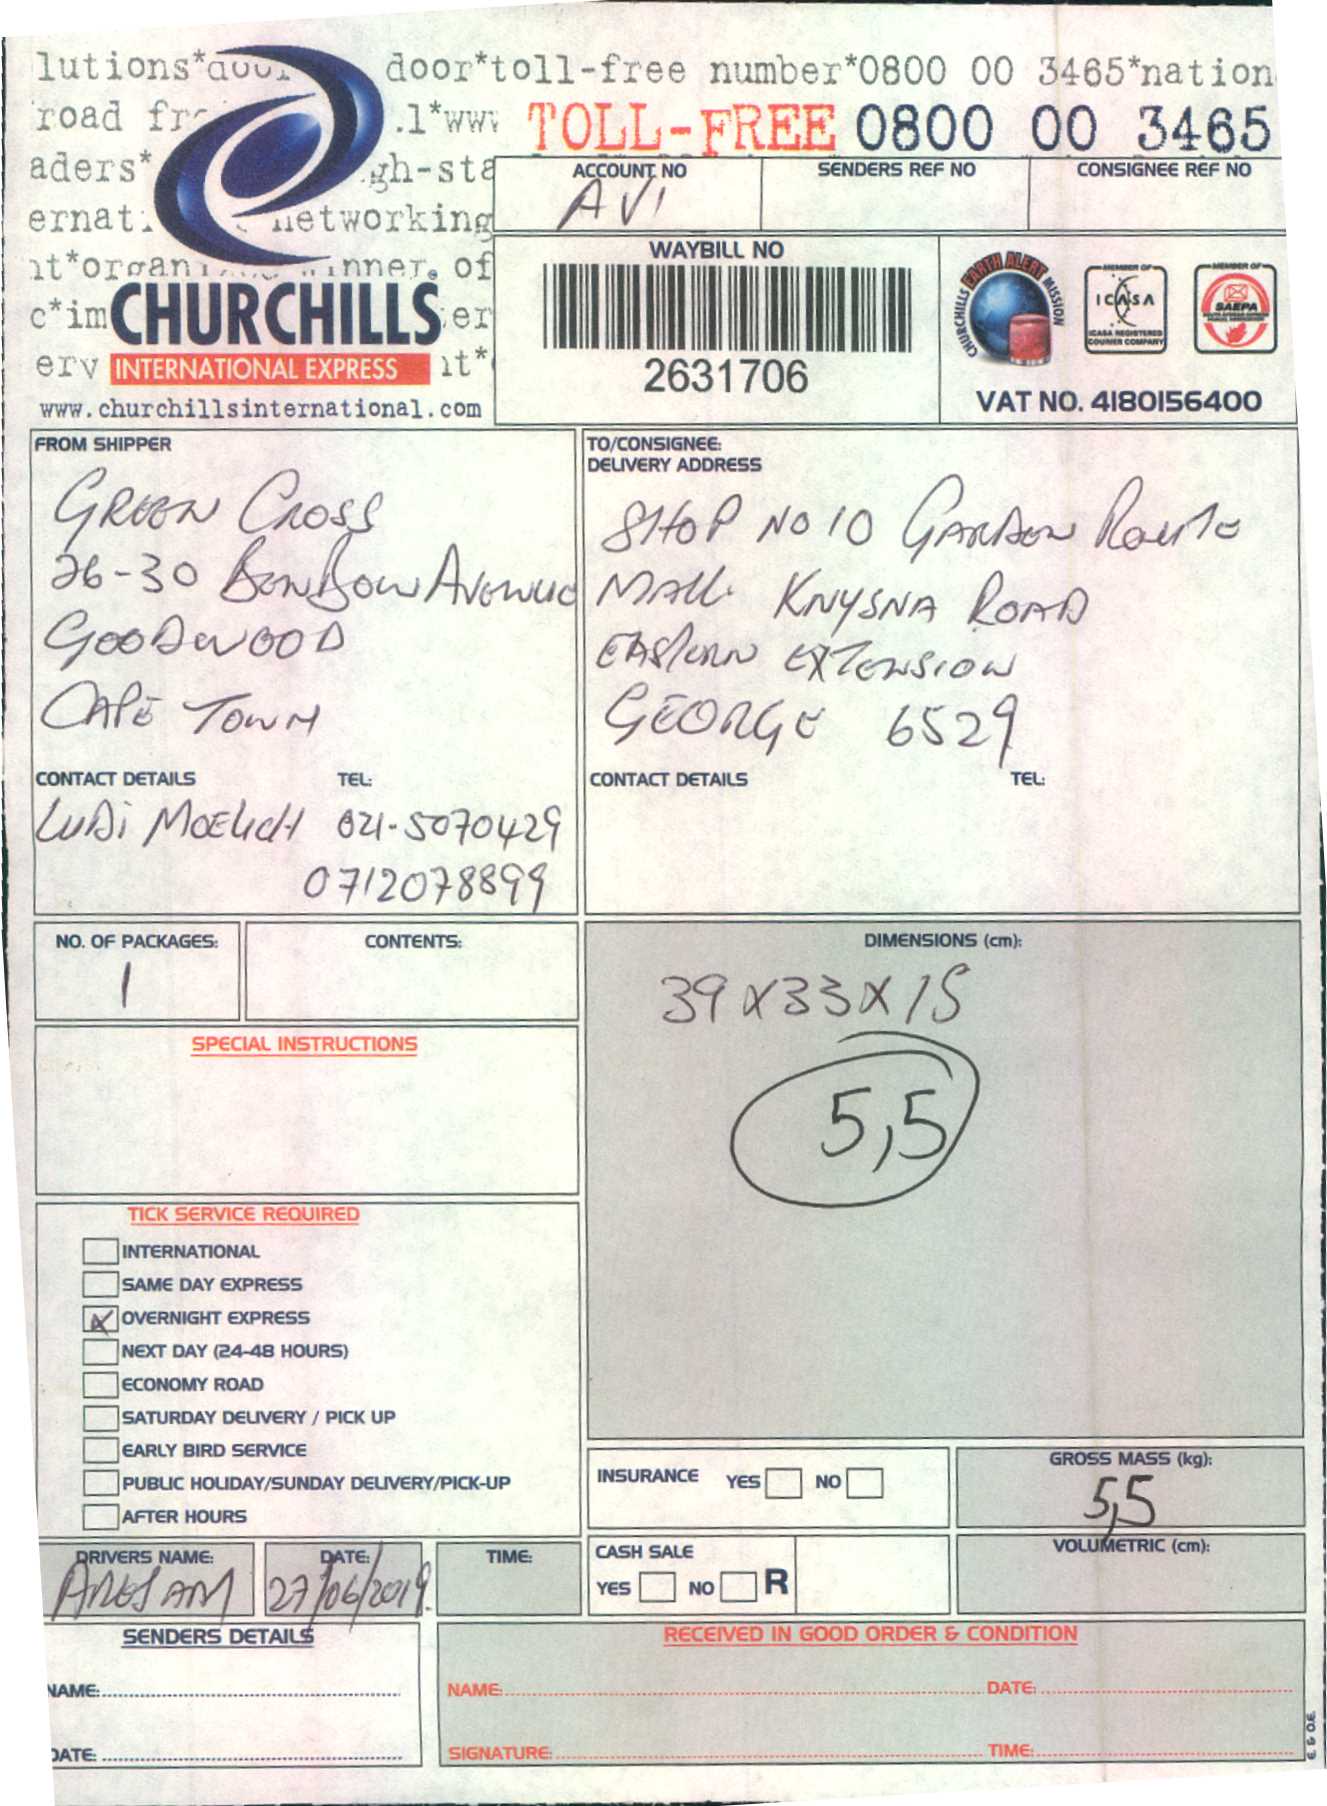 lutions*door door*toll-free number*0800 00 3465*nation
road fr .l*www
TOLL-FREE 0800 00 3465
aders* gh-sta
ACCOUNT NO
AVI
SENDERS REF NO
CONSIGNEE REF NO
ernat networking
nt*organ winner. of
c*im er
CHURCHILLS
erv nt*
INTERNATIONAL EXPRESS
www.churchillsinternational.com
WAYBILL NO
2631706
CHURCHILLS EARTH ALERT MISSION
MEMBER OF
ICASA
ICASA REGISTERED
COURIER COMPANY
MEMBER OF
SAEPA
VAT NO. 4180156400
FROM SHIPPER
GREEN CROSS
26-30 BENBOW AVENUE
GOODWOOD
CAPE TOWN
CONTACT DETAILS TEL:
LUDI 021-5070429
0712078899
TO/CONSIGNEE:
DELIVERY ADDRESS
SHOP NO 10 GARDEN ROUTE
MALL KNYSNA ROAD
EASTERN EXTENSION
GEORGE 6529
CONTACT DETAILS TEL:
NO. OF PACKAGES:
1
CONTENTS:
DIMENSIONS (cm):
39 x 33 x 15
5,5
SPECIAL INSTRUCTIONS
TICK SERVICE REQUIRED
INTERNATIONAL
SAME DAY EXPRESS
OVERNIGHT EXPRESS
NEXT DAY (24-48 HOURS)
ECONOMY ROAD
SATURDAY DELIVERY / PICK UP
EARLY BIRD SERVICE
PUBLIC HOLIDAY/SUNDAY DELIVERY/PICK-UP
AFTER HOURS
INSURANCE YES NO
GROSS MASS (kg):
5,5
CASH SALE
YES NO R
VOLUMETRIC (cm):
DRIVERS NAME:
DATE:
27/06/2019
TIME:
SENDERS DETAILS
NAME:
DATE:
RECEIVED IN GOOD ORDER & CONDITION
NAME: DATE:
SIGNATURE: TIME:
E & O.E